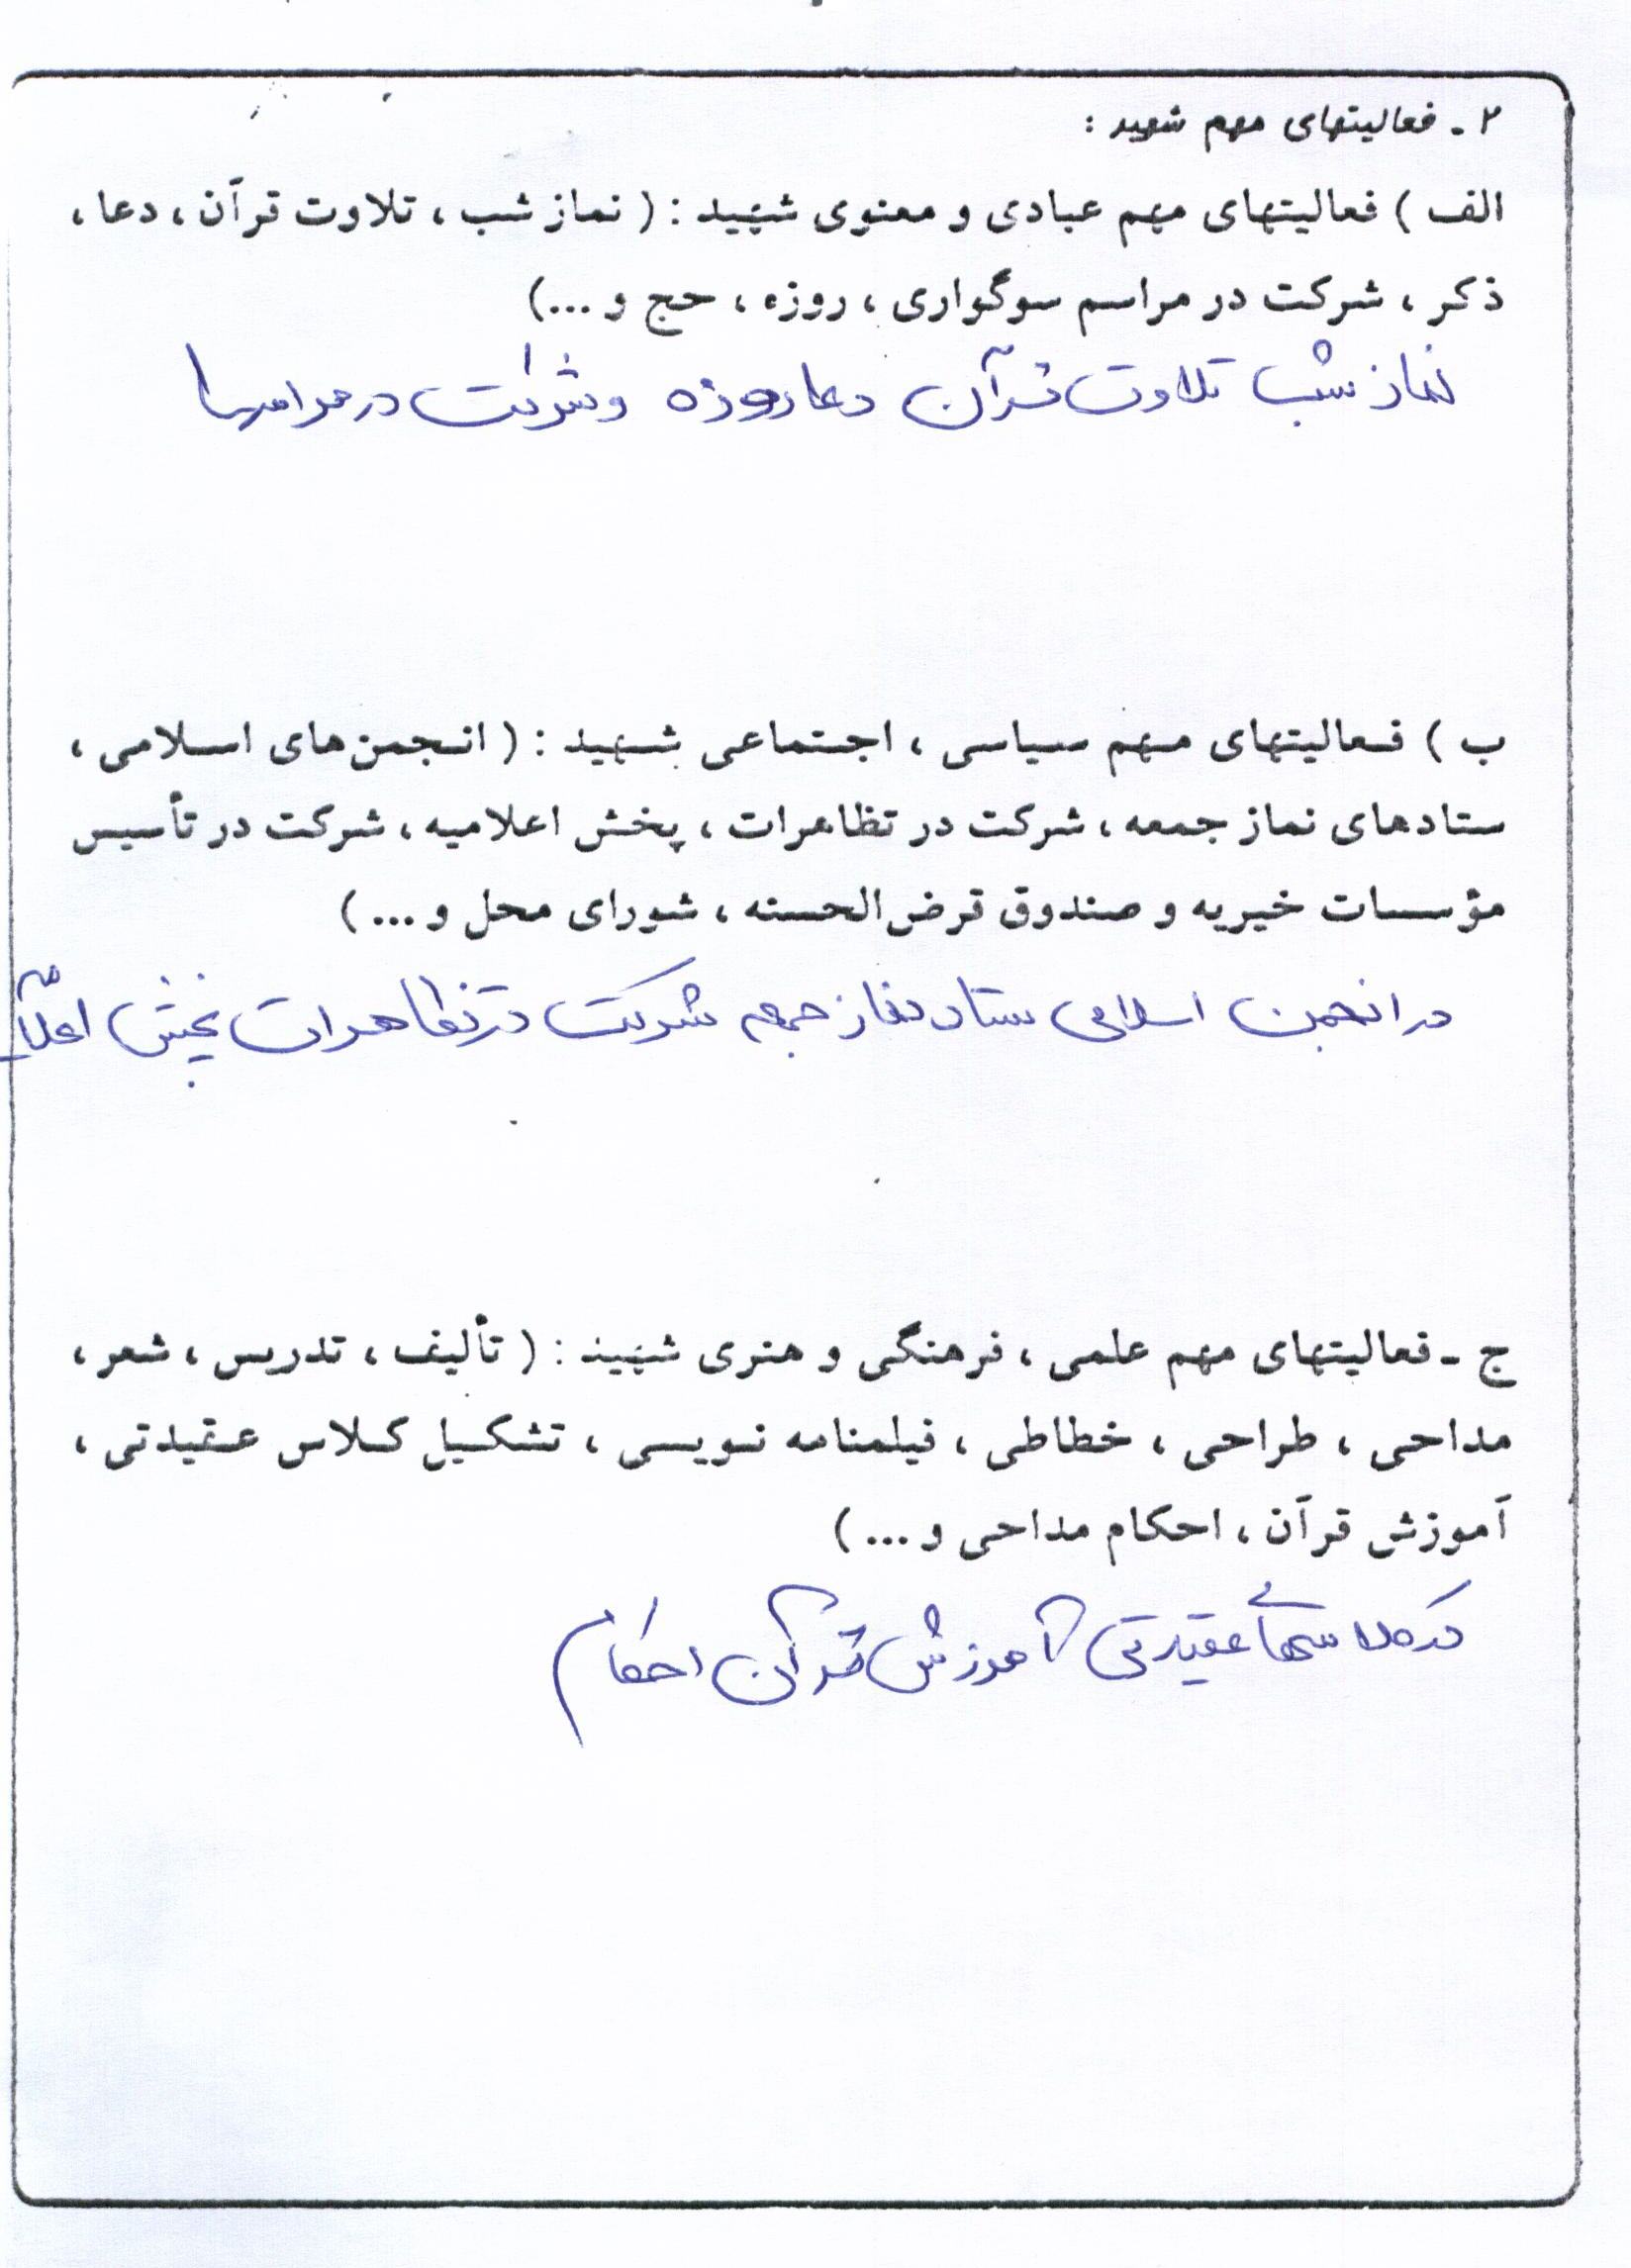 ۲ ـ فعالیتهای مهم شهید :
الف ) فعالیتهای مهم عبادی و معنوی شهید : ( نماز شب ، تلاوت قرآن ، دعا ،
ذکر ، شرکت در مراسم سوگواری ، روزه ، حج و ...)
نماز شب تلاوت قرآن دعا روزه و شرکت در
ب ) فعالیتهای مهم سیاسی ، اجتماعی شهید : ( انجمن‌های اسلامی ،
ستادهای نماز جمعه ، شرکت در تظاهرات ، پخش اعلامیه ، شرکت در تأسیس
مؤسسات خیریه و صندوق قرض‌الحسنه ، شورای محل و ... )
در انجمن اسلامی ستاد نماز جمعه شرکت در تظاهرات پخش
ج ـ فعالیتهای مهم علمی ، فرهنگی و هنری شهید : ( تألیف ، تدریس ، شعر ،
مداحی ، طراحی ، خطاطی ، فیلمنامه نویسی ، تشکیل کلاس عقیدتی ،
آموزش قرآن ، احکام مداحی و ... )
در کلاسهای عقیدتی آموزش قرآن احکام